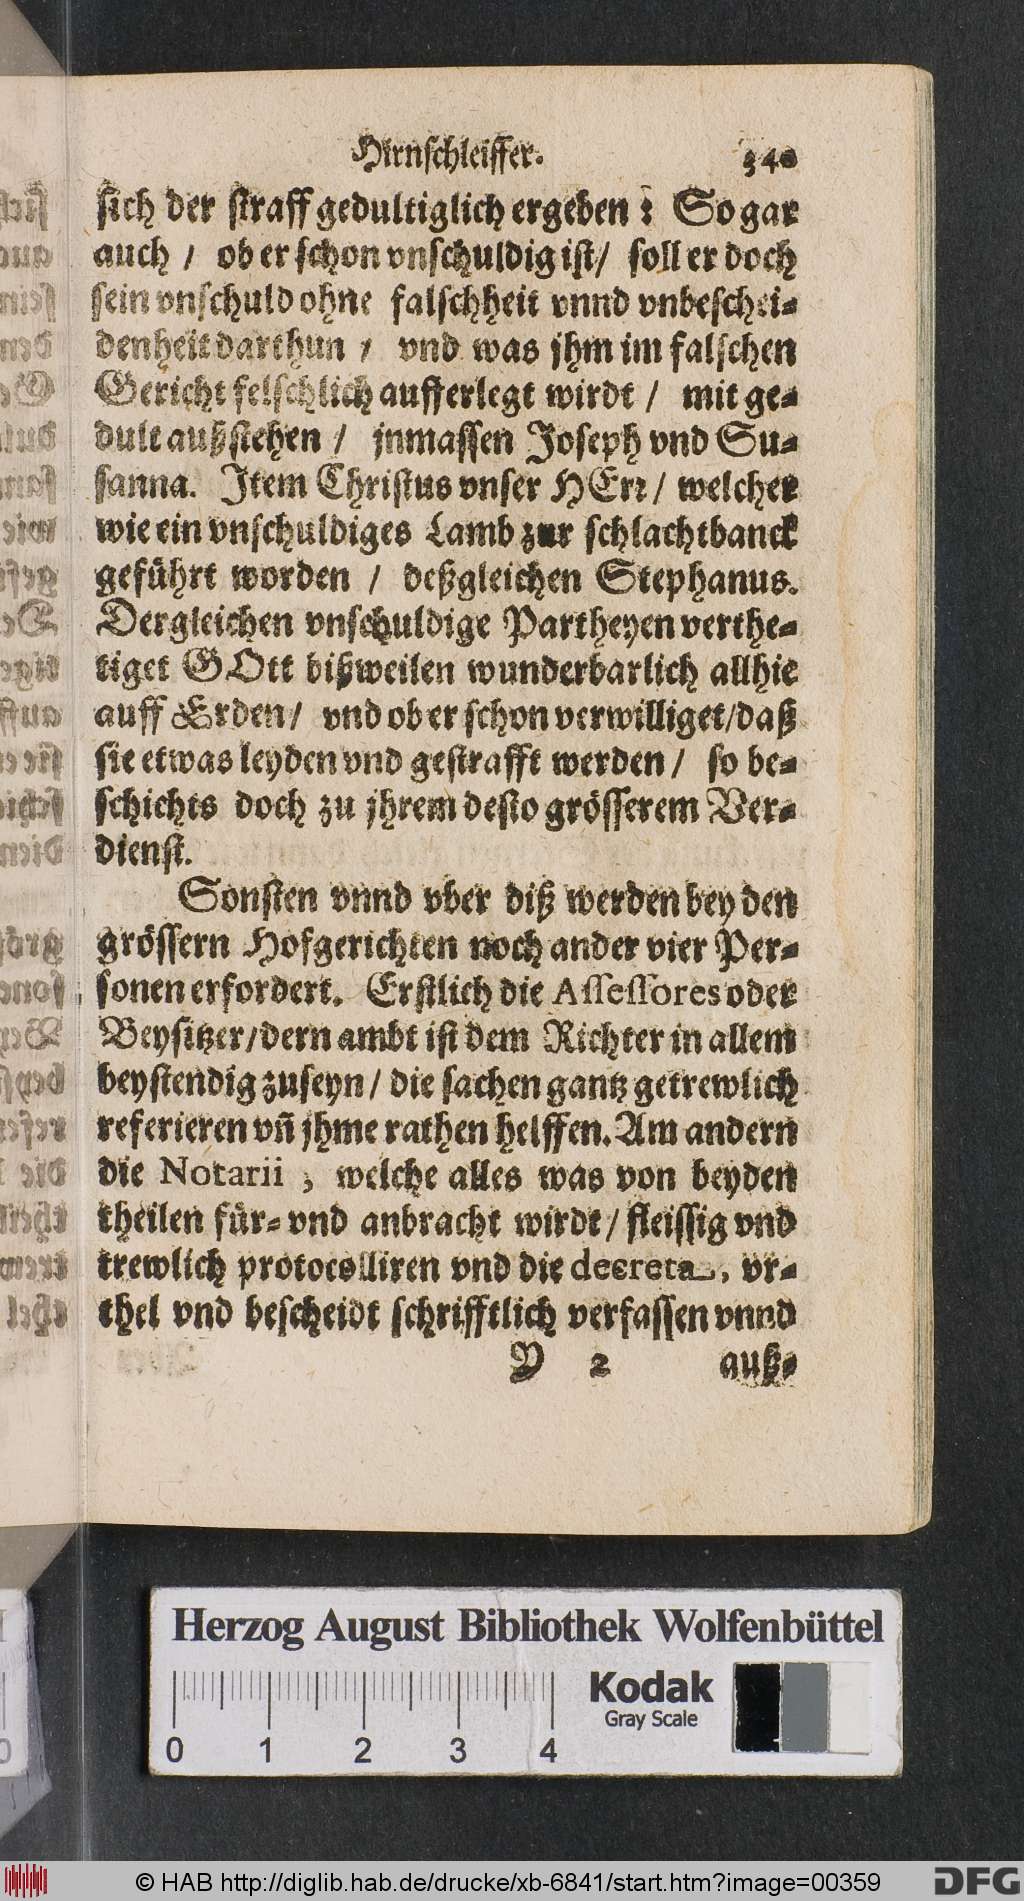 Hirnschleiffer. 340
sich der straff gedultiglich ergeben: So gar
auch / ob er schon vnschuldig ist / soll er doch
sein vnschuld ohne falschheit vnnd vnbeschei-
denheit darthun / vnd was jhm im falschen
Gericht felschlich aufferlegt wirdt / mit ge-
dult außstehen / jnmassen Joseph vnd Su-
sanna. Item Christus vnser HErr / welcher
wie ein vnschuldiges Lamb zur schlachtbanck
geführt worden / deßgleichen Stephanus.
Dergleichen vnschuldige Partheyen verthe-
tiget GOtt bißweilen wunderbarlich allhie
auff Erden / vnd ob er schon verwilliget / daß
sie etwas leyden vnd gestrafft werden / so be-
schichts doch zu jhrem desto grösserem Ver-
dienst.
Sonsten vnnd vber diß werden bey den
grössern Hofgerichten noch ander vier Per-
sonen erfordert. Erstlich die Assessores oder
Beysitzer / dern ambt ist dem Richter in allem
beystendig zuseyn / die sachen gantz getrewlich
referieren vñ jhme rathen helffen. Am andern
die Notarii, welche alles was von beyden
theilen für- vnd anbracht wirdt / fleissig vnd
trewlich protocolliren vnd die decreta, vr-
thel vnd bescheidt schrifftlich verfassen vnnd
Y 2 auß-
Herzog August Bibliothek Wolfenbüttel
Kodak
Gray Scale
0 1 2 3 4
© HAB http://diglib.hab.de/drucke/xb-6841/start.htm?image=00359
DFG